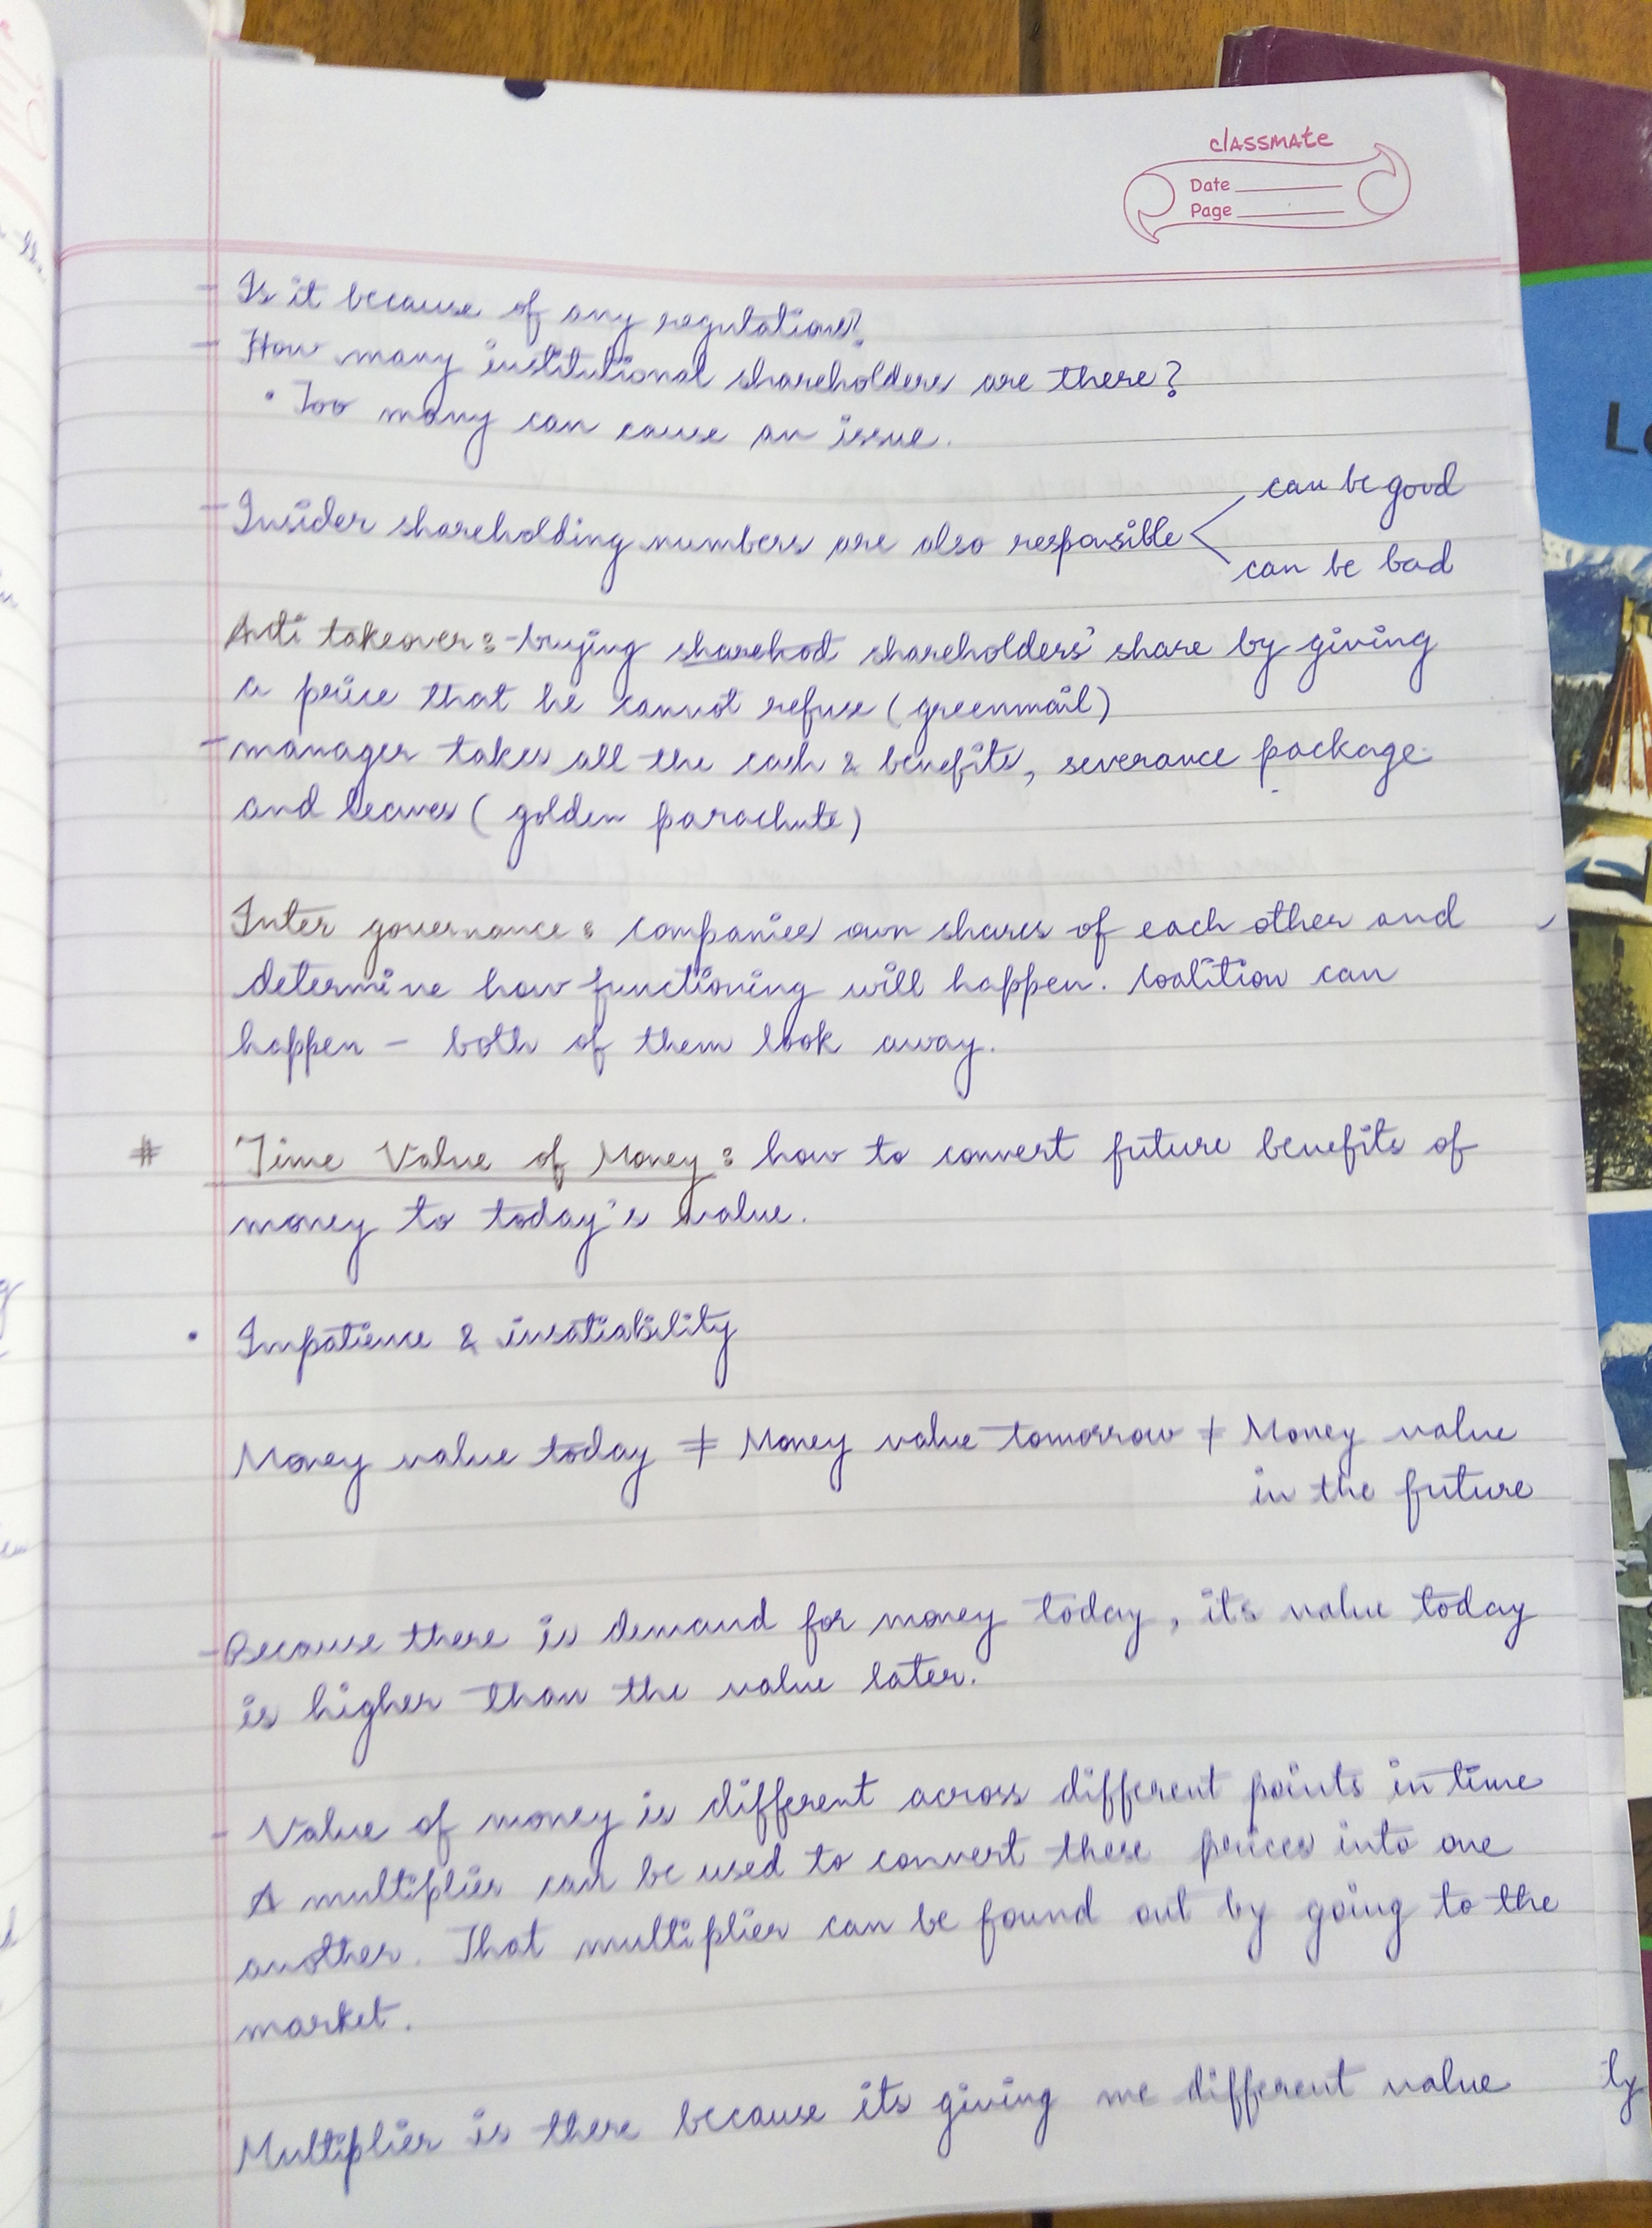 classmate
Date
Page
- Is it because of any regulations?
- How many institutional shareholders are there?
• Too many can cause an issue.
- Insider shareholding numbers are also responsible < can be good
can be bad
Anti takeover: - buying sharehod shareholders' share by giving
a price that he cannot refuse (greenmail)
- manager takes all the cash & benefits, severance package
and leaves (golden parachute)
Inter governance: companies own shares of each other and
determine how functioning will happen. Coalition can
happen - both of them look away.
# Time Value of Money: how to convert future benefits of
money to today's value.
• Impatience & insatiability
Money value today ≠ Money value tomorrow ≠ Money value
in the future
- Because there is demand for money today, its value today
is higher than the value later.
- Value of money is different across different points in time
A multiplier can be used to convert these prices into one
another. That multiplier can be found out by going to the
market.
Multiplier is there because its giving me different value